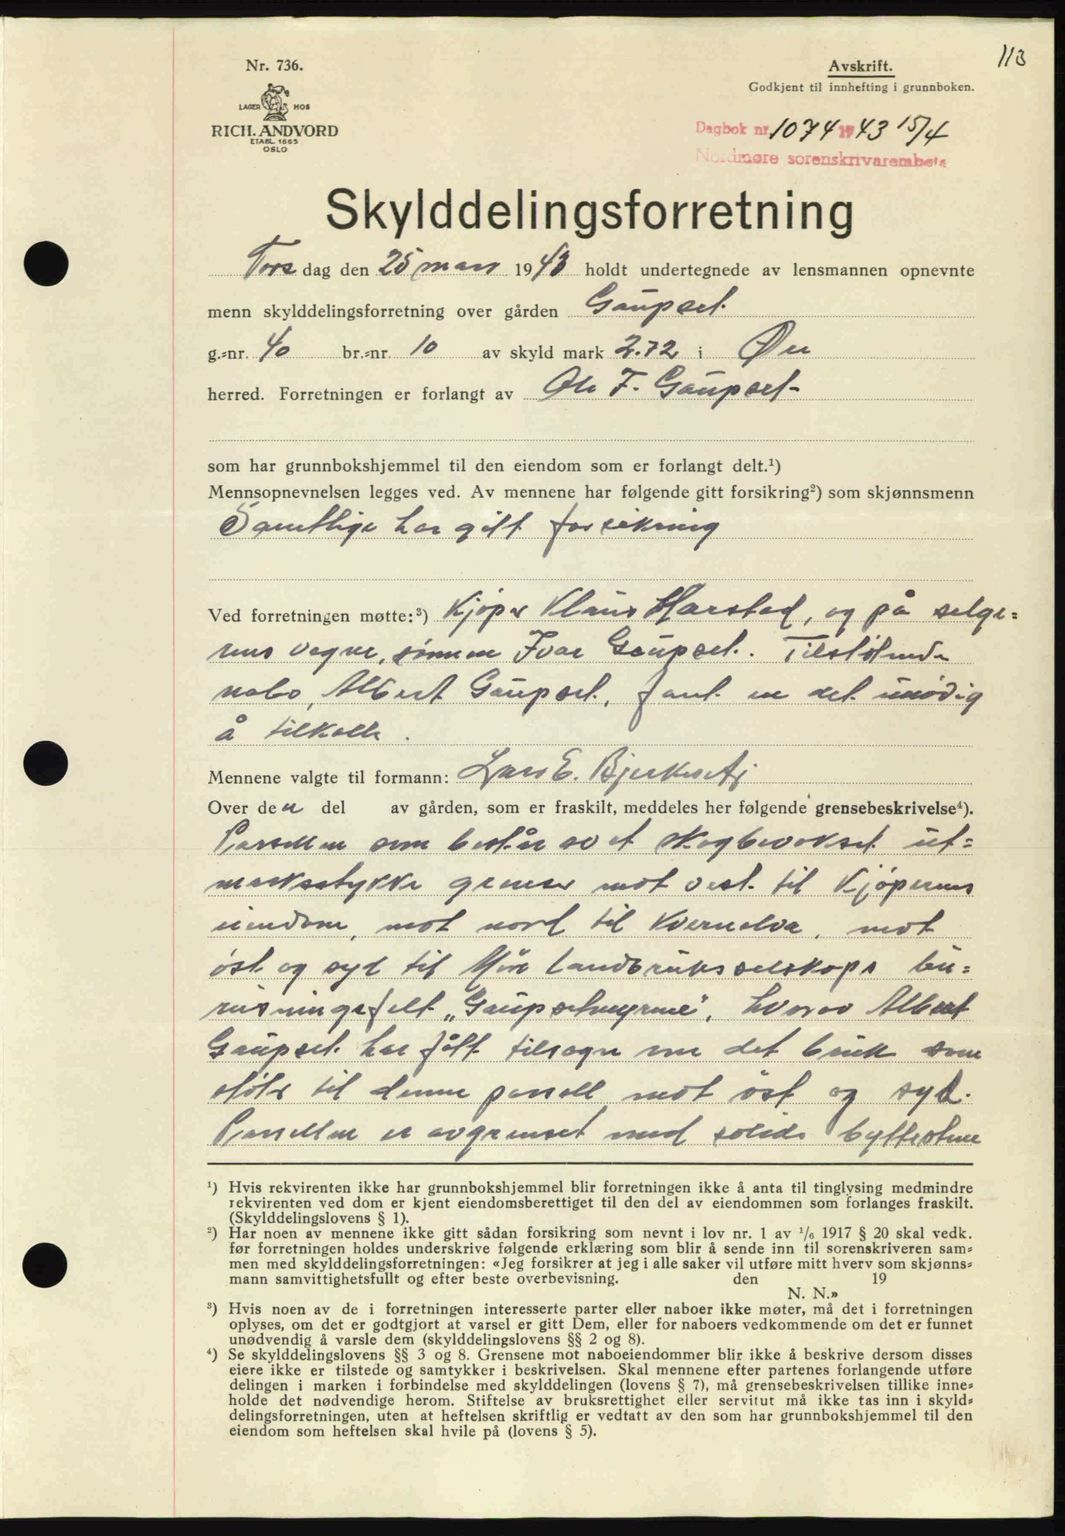 113
Nr. 736.
LAGER HOS
RICH. ANDVORD
ETABL. 1865
OSLO
Avskrift.
Godkjent til innhefting i grunnboken.
Dagbok nr. 1074 1943 15/4
Nordmøre sorenskrivarembete
Skylddelingsforretning
Tors dag den 25 mars 1943 holdt undertegnede av lensmannen opnevnte
menn skylddelingsforretning over gården Gaupset
g.-nr. 40 br.-nr. 10 av skyld mark 2.72 i Øre
herred. Forretningen er forlangt av Ole F. Gaupset
som har grunnbokshjemmel til den eiendom som er forlangt delt.¹)
Mennsopnevnelsen legges ved. Av mennene har følgende gitt forsikring²) som skjønnsmenn
Samtlige har gitt forsikring
Ved forretningen møtte:³) Kjöper Klaus Harstad, og på selge=
rens vegne, sönnen Ivar Gaupset. Tilstötende
nabo, Albert Gaupset, fant en det unödig
å tilkalle.
Mennene valgte til formann: Lars E. Bjerkeset
Over den del av gården, som er fraskilt, meddeles her følgende grensebeskrivelse⁴).
Parsellen som består av et skogbevokset ut=
marksstykke grenser mot vest til Kjöperens
eiendom, mot nord til Kvernelva, mot
öst og syd til Möre Landbruksselskaps bu=
reisningsfelt „Gaupsetmyrene", hvorav Albert
Gaupset har fått tilsagn om det bruk som
stöter til denne parsell mot öst og syd.
Parsellen er avgrenset med solide byttestene
¹) Hvis rekvirenten ikke har grunnbokshjemmel blir forretningen ikke å anta til tinglysing medmindre
rekvirenten ved dom er kjent eiendomsberettiget til den del av eiendommen som forlanges fraskilt.
(Skylddelingslovens § 1).
²) Har noen av mennene ikke gitt sådan forsikring som nevnt i lov nr. 1 av 1/6 1917 § 20 skal vedk.
før forretningen holdes underskrive følgende erklæring som blir å sende inn til sorenskriveren sam=
men med skylddelingsforretningen: «Jeg forsikrer at jeg i alle saker vil utføre mitt hverv som skjønns=
mann samvittighetsfullt og efter beste overbevisning. den 19
N. N.»
³) Hvis noen av de i forretningen interesserte parter eller naboer ikke møter, må det i forretningen
oplyses, om det er godtgjort at varsel er gitt Dem, eller for naboers vedkommende om det er funnet
unødvendig å varsle dem (skylddelingslovens §§ 2 og 8).
⁴) Se skylddelingslovens §§ 3 og 8. Grensene mot naboeiendommer blir ikke å beskrive dersom disses
eiere ikke er tilstede og samtykker i beskrivelsen. Skal mennene efter partenes forlangende utføre
delingen i marken i forbindelse med skylddelingen (lovens § 7), må grensebeskrivelsen tillike inne=
holde det nødvendige herom. Stiftelse av bruksrettighet eller servitut må ikke tas inn i skyld=
delingsforretningen, uten at heftelsen skriftlig er vedtatt av den som har grunnbokshjemmel til den
eiendom som heftelsen skal hvile på (lovens § 5).